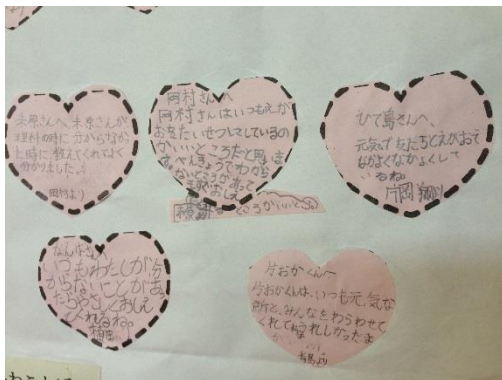 末原さんへ末原さんが
理科の時に分からなかっ
た時に教えてくれてよく
分かりました。
田村より
岡村さんへ
岡村さんはいつもえが
おをたいせつにしているの
がいいところだと思いま
す。べんきょうでわから
ないところがあって
おしえ
るところがいいと
ひで島さんへ
元気で友だちとえがおで
なかよくなかよくして
いるね。
片岡
なんばさんへ
いつもわたしが分
からないことがあっ
たらやさしくおしえ
てくれるね。
片おかくんへ
片おかくんは、いつも元気な
所と、みんなをわらわせて
くれてうれしかったよ